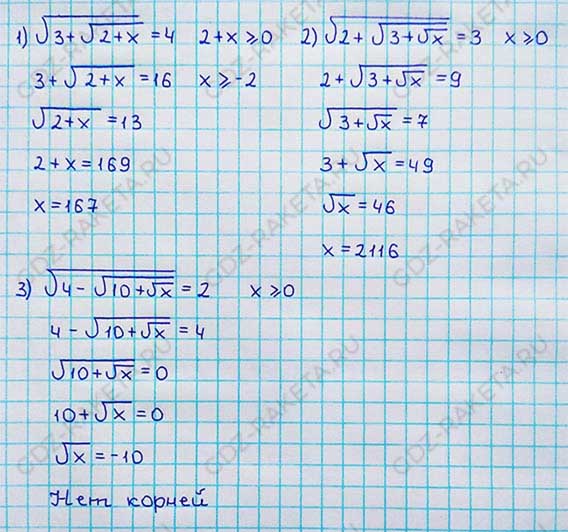 1) √(3+√(2+x)) = 4 2+x ⩾ 0
3+√(2+x) = 16 x ⩾ -2
√(2+x) = 13
2+x = 169
x = 167
2) √(2+√(3+√x)) = 3 x ⩾ 0
2+√(3+√x) = 9
√(3+√x) = 7
3+√x = 49
√x = 46
x = 2116
3) √(4-√(10+√x)) = 2 x ⩾ 0
4-√(10+√x) = 4
√(10+√x) = 0
10+√x = 0
√x = -10
Нет корней
GDZ-RAKETA.RU